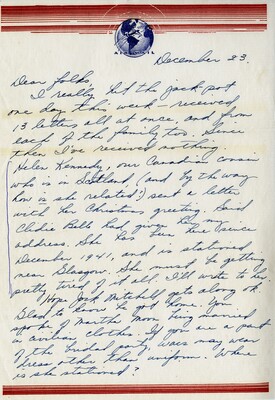 December 23.
Dear folks,
I really hit the jack pot
one day this week - received
13 letters all at once, and from
each of the family too. Since
then I've received nothing.
Helen Kennedy, our Canadian cousin
who is in Scotland (and by the way
how is she related?) sent a letter
with her Christmas greeting. Said
Belle had given her my
address. She has been here since
December 1941, and is stationed
near Glasgow. She must be getting
pretty tired of it all. I'll write to her.
Hope Jack Mitchell gets along ok.
Glad to know he got home. You
spoke of Martha Moon being married
in civilian clothes. If you are a part
of the bridal party, wacs may wear
dress other than uniform. Where
is she stationed?